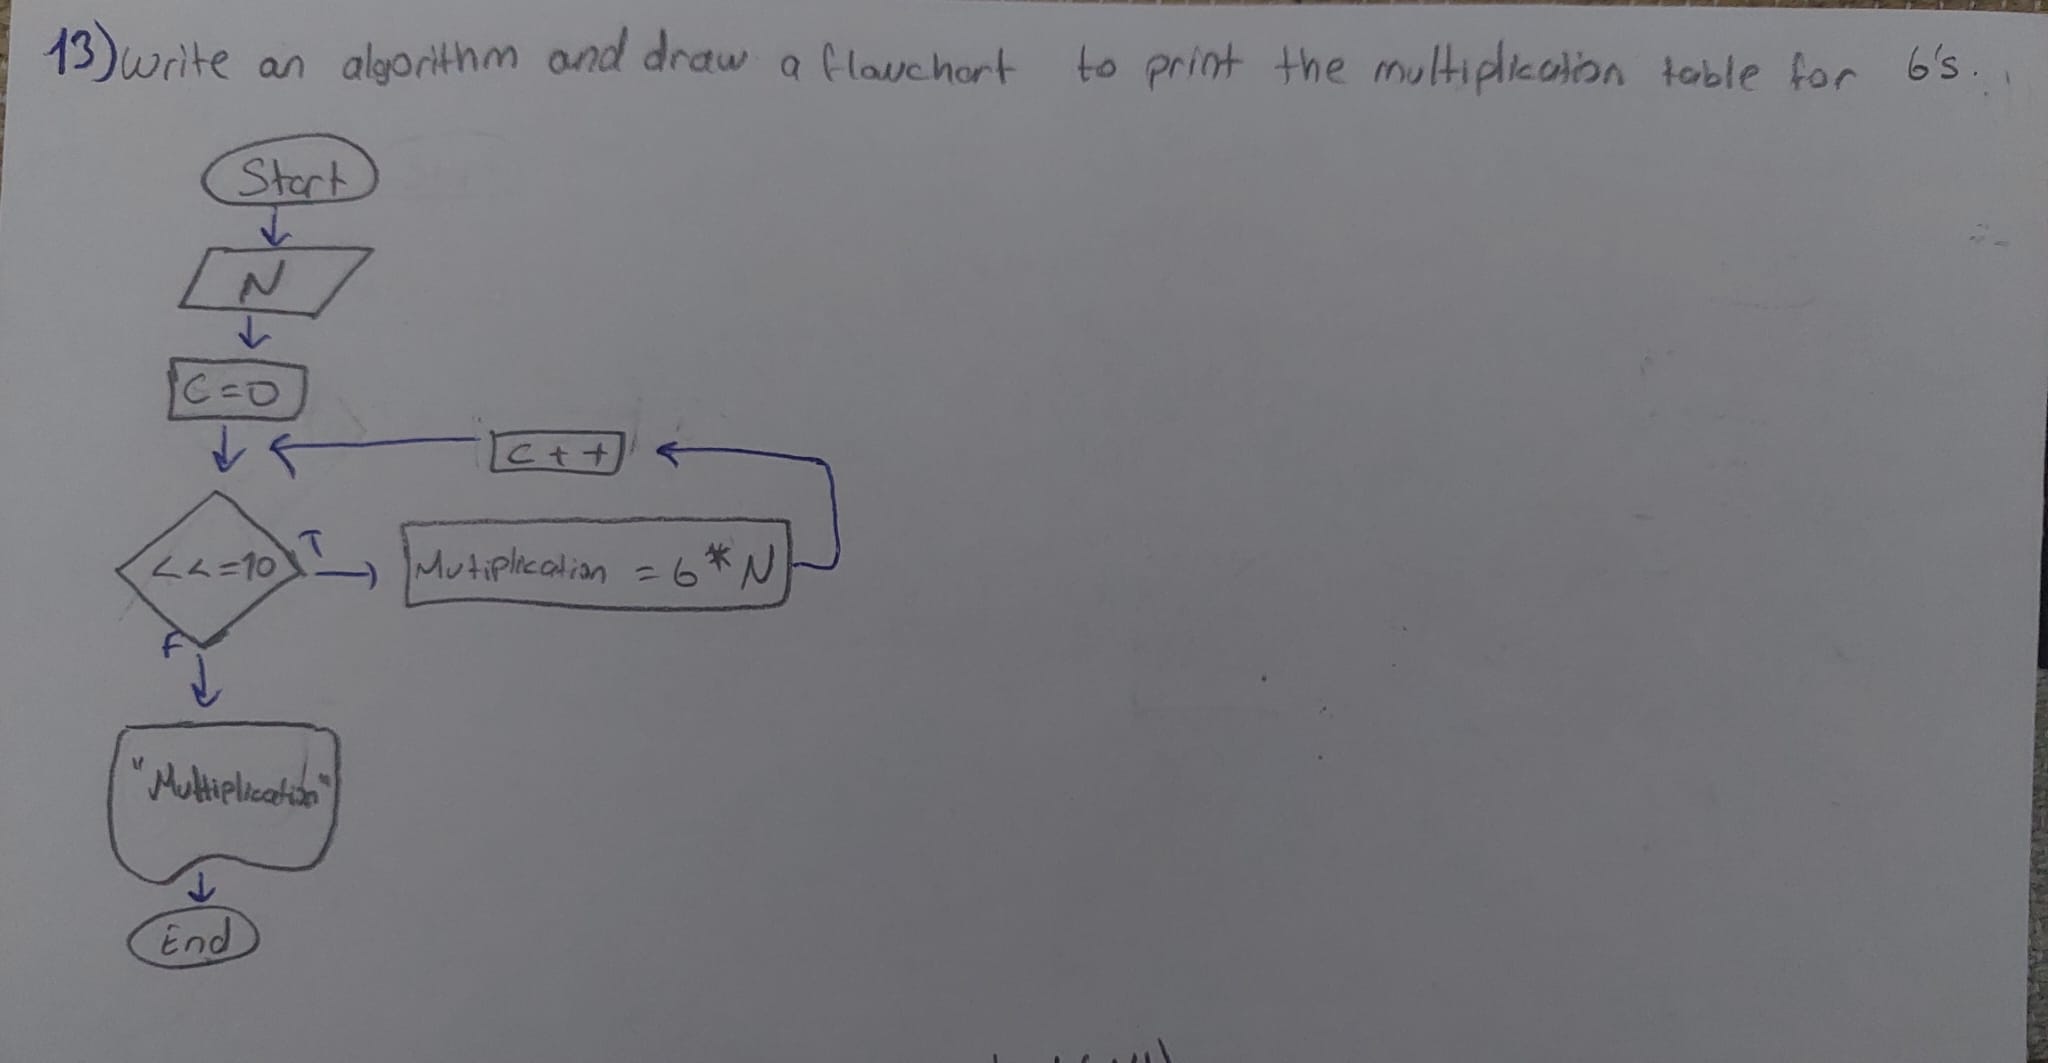 13) write an algorithm and draw a flowchort to print the multiplication table for 6's.
Start
N
C=0
C++
<<=10
T
Mutiplication = 6*N
F
"Multiplication"
End